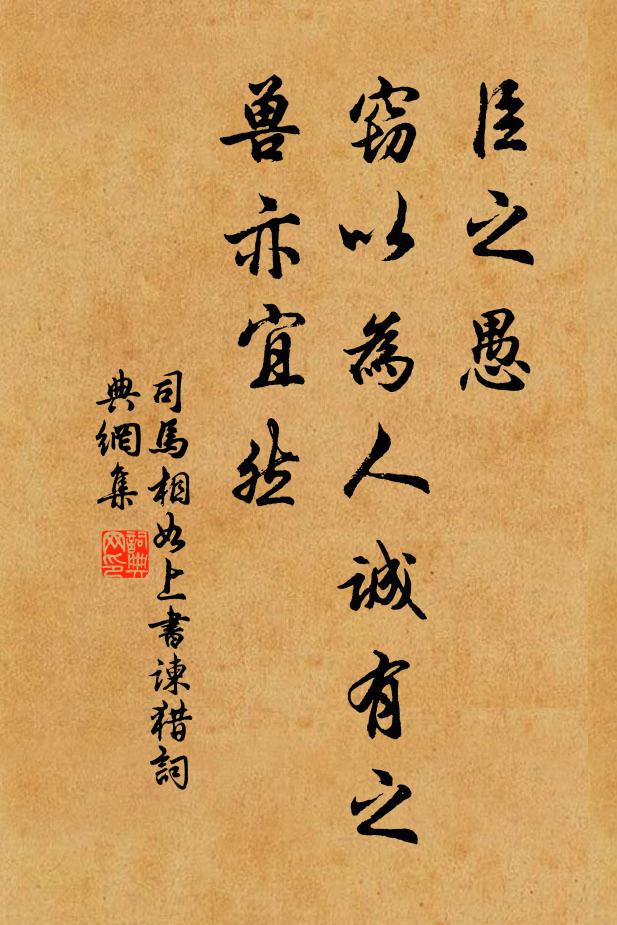 臣之愚
窃以為人誠有之
兽亦宜然
司馬相如上書諫猎詞
典網集
詞典
网印